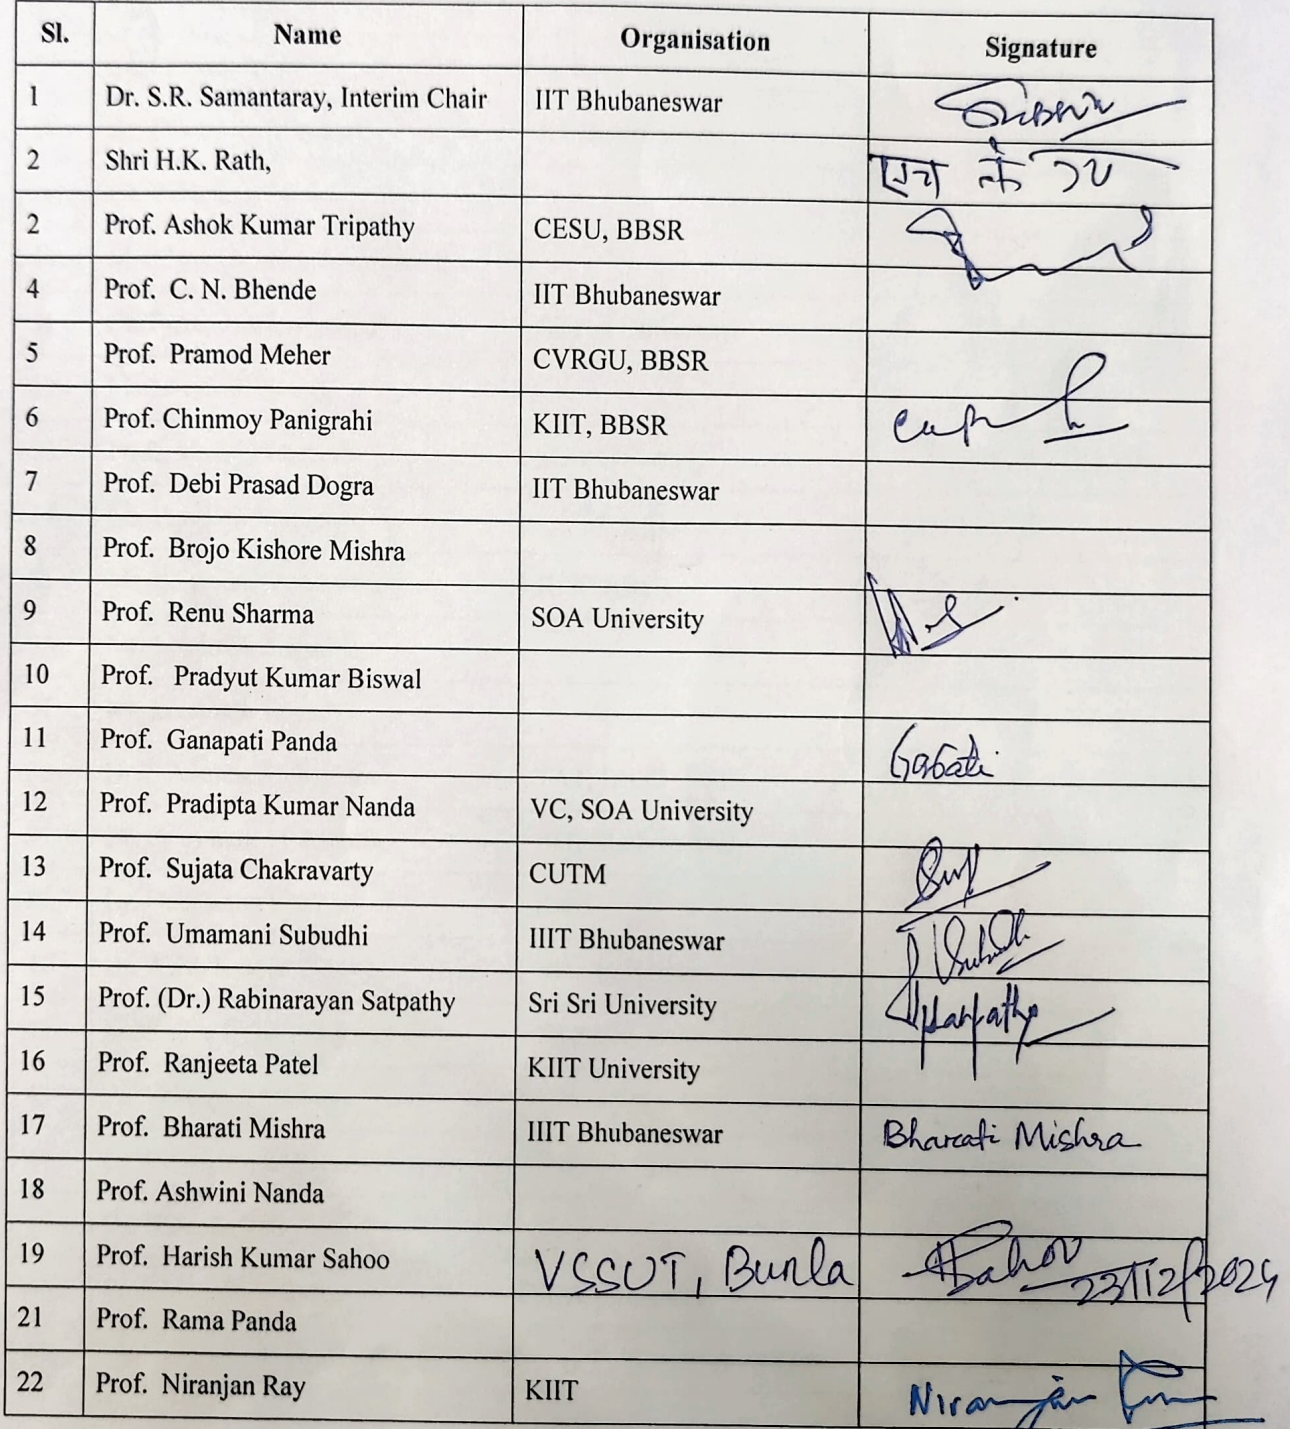 Sl. Name Organisation Signature
1 Dr. S.R. Samantaray, Interim Chair IIT Bhubaneswar
2 Shri H.K. Rath, एच के रथ
2 Prof. Ashok Kumar Tripathy CESU, BBSR
4 Prof. C. N. Bhende IIT Bhubaneswar
5 Prof. Pramod Meher CVRGU, BBSR
6 Prof. Chinmoy Panigrahi KIIT, BBSR
7 Prof. Debi Prasad Dogra IIT Bhubaneswar
8 Prof. Brojo Kishore Mishra
9 Prof. Renu Sharma SOA University
10 Prof. Pradyut Kumar Biswal
11 Prof. Ganapati Panda
12 Prof. Pradipta Kumar Nanda VC, SOA University
13 Prof. Sujata Chakravarty CUTM
14 Prof. Umamani Subudhi IIIT Bhubaneswar
15 Prof. (Dr.) Rabinarayan Satpathy Sri Sri University
16 Prof. Ranjeeta Patel KIIT University
17 Prof. Bharati Mishra IIIT Bhubaneswar Bharati Mishra
18 Prof. Ashwini Nanda
19 Prof. Harish Kumar Sahoo VSSUT, Burla HSahoo 23/12/2024
21 Prof. Rama Panda
22 Prof. Niranjan Ray KIIT Niranjan